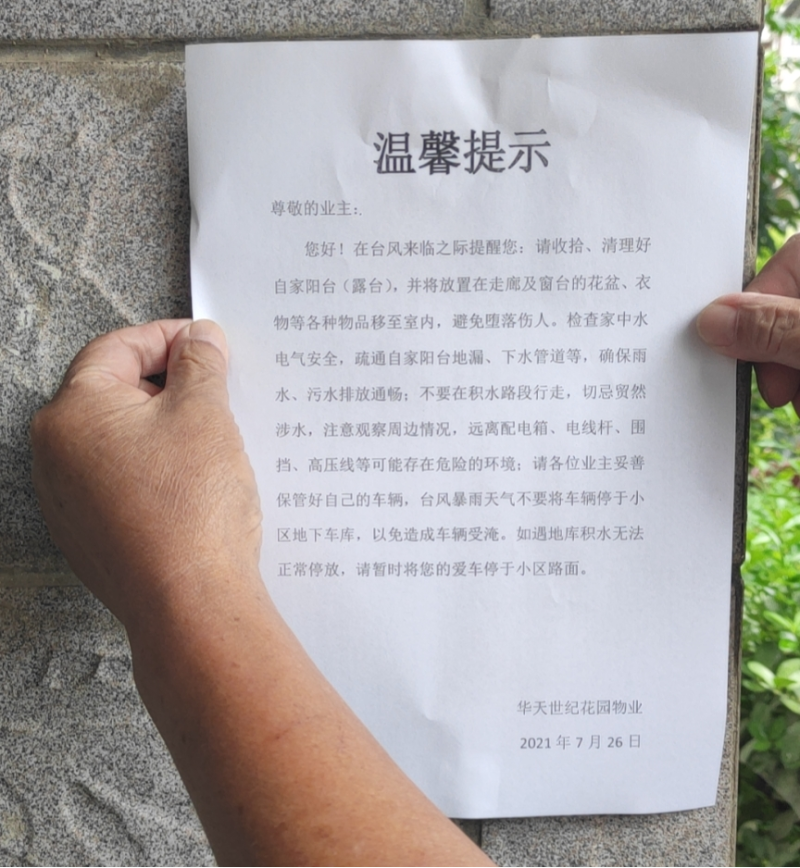 温馨提示
尊敬的业主:.
您好！在台风来临之际提醒您：请收拾、清理好
自家阳台（露台），并将放置在走廊及窗台的花盆、衣
物等各种物品移至室内，避免堕落伤人。检查家中水
电气安全，疏通自家阳台地漏、下水管道等，确保雨
水、污水排放通畅；不要在积水路段行走，切忌贸然
涉水，注意观察周边情况，远离配电箱、电线杆、围
挡、高压线等可能存在危险的环境；请各位业主妥善
保管好自己的车辆，台风暴雨天气不要将车辆停于小
区地下车库，以免造成车辆受淹。如遇地库积水无法
正常停放，请暂时将您的爱车停于小区路面。
华天世纪花园物业
2021 年 7 月 26 日